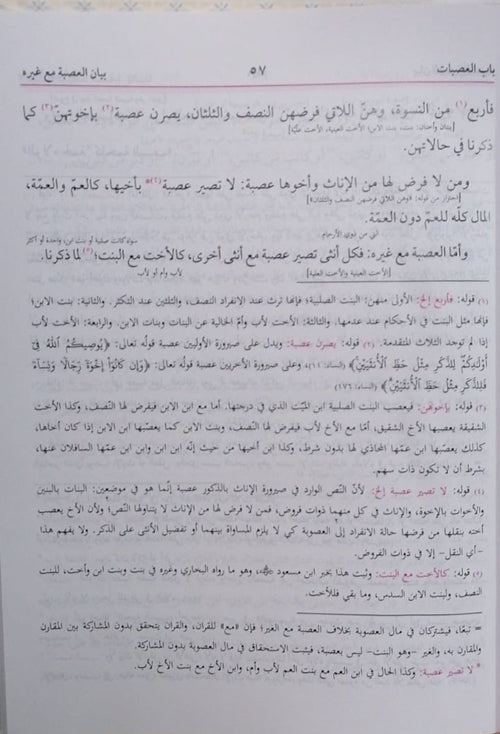 باب العصبات ٥٧ بيان العصبة مع غيره
فأربع(١) من النسوة، وهنّ اللاتي فرضهن النصف والثلثان، يصرن عصبة(٢) بإخوتهنّ(٣) كما
[بنتان وأختان: بنت، بنت الابن؛ الأخت العينية، الأخت علّية]
ذكرنا في حالاتهن.
ومن لا فرض لها من الإناث وأخوها عصبة: لا تصير عصبة(٤)* بأخيها، كالعم والعمّة،
[احتراز من قوله: «وهن اللاتي فرضهن النصف والثلثان»]
المال كلّه للعم دون العمّة.
أنثى من ذوي الأرحام سواء كانت صلبية أو بنت ابن، واحدة أو أكثر
وأمّا العصبة مع غيره: فكل أنثى تصير عصبة مع أنثى أخرى، كالأخت مع البنت؛(٥) لما ذكرنا.
[الأخت العينية والأخت العلية] لأب وأم أو لأب
(١) قوله: فأربع إلخ: الأولى منهن: البنت الصلبية؛ فإنها ترث عند الانفراد النصف، والثلثين عند التكثر. والثانية: بنت الابن؛
فإنها مثل البنت في الأحكام عند عدمها. والثالثة: الأخت لأب وأمّ الخالية عن البنات وبنات الابن. والرابعة: الأخت لأب
إذا لم توجد الثلاث المتقدمة. (٢) قوله: يصرن عصبة: ويدل على صيرورة الأوليين عصبة قولُه تعالى: ﴿يُوصِيكُمُ ٱللَّهُ فِيٓ
أَوۡلَٰدِكُمۡۖ لِلذَّكَرِ مِثۡلُ حَظِّ ٱلۡأُنثَيَيۡنِۚ﴾ (النساء: ١١)، وعلى صيرورة الأخريين عصبة قولُه تعالى: ﴿وَإِن كَانُوٓاْ إِخۡوَةٗ رِّجَالٗا وَنِسَآءٗ
فَلِلذَّكَرِ مِثۡلُ حَظِّ ٱلۡأُنثَيَيۡنِۗ﴾ (النساء: ١٧٦)
(٣) قوله: بإخوتهن: فيعصب البنت الصلبية ابن الميّت الذي في درجتها. أما مع ابن الابن فيفرض لها النّصف، وكذا الأخت
الشقيقة يعصبها الأخ الشقيق، أمّا مع الأخ لأب فيفرض لها النّصف، وبنت الابن كما يعصّبها ابن الابن إذا كان أخاها،
كذلك يعصّبها ابن عمّها المحاذي لها بدون شرط، وكذا ابن أخيها من حيث إنّه ابن ابن وابن ابن عمها السافلان عنها،
بشرط أن لا تكون ذات سهم.
(٤) قوله: لا تصير عصبة إلخ: لأنّ النّص الوارد في صيرورة الإناث بالذكور عصبة إنّما هو في موضعين: البنات بالبنين
والأخوات بالإخوة، والإناث في كل منهما ذوات فروض، فمن لا فرض لها من الإناث لا يتناولها النّص؛ ولأن الأخ يعصب
أخته بنقلها من فرضها حالة الانفراد إلى العصوبة كي لا يلزم المساواة بينهما أو تفضيل الأنثى على الذكر. ولا يفهم هذا
-أي النقل- إلا في ذوات الفروض.
(٥) قوله: كالأخت مع البنت: وثبت هذا بخبر ابن مسعود ﷺ، وهو ما رواه البخاري وغيره في بنت وبنت ابن وأخت، للبنت
النصف، ولبنت الابن السدس، وما بقي فللأخت.
= تبعًا، فيشتركان في مال العصوبة بخلاف العصبة مع الغير؛ فإن «مع» للقران، والقران يتحقق بدون المشاركة بين المقارن
والمقارن به، والغير -وهو البنت- ليس بعصبة، فيثبت الاستحقاق في مال العصوبة بدون المشاركة.
* لا تصير عصبة: وكذا الحال في ابن العم مع بنت العم لأب وأم، وابن الأخ مع بنت الأخ لأب.